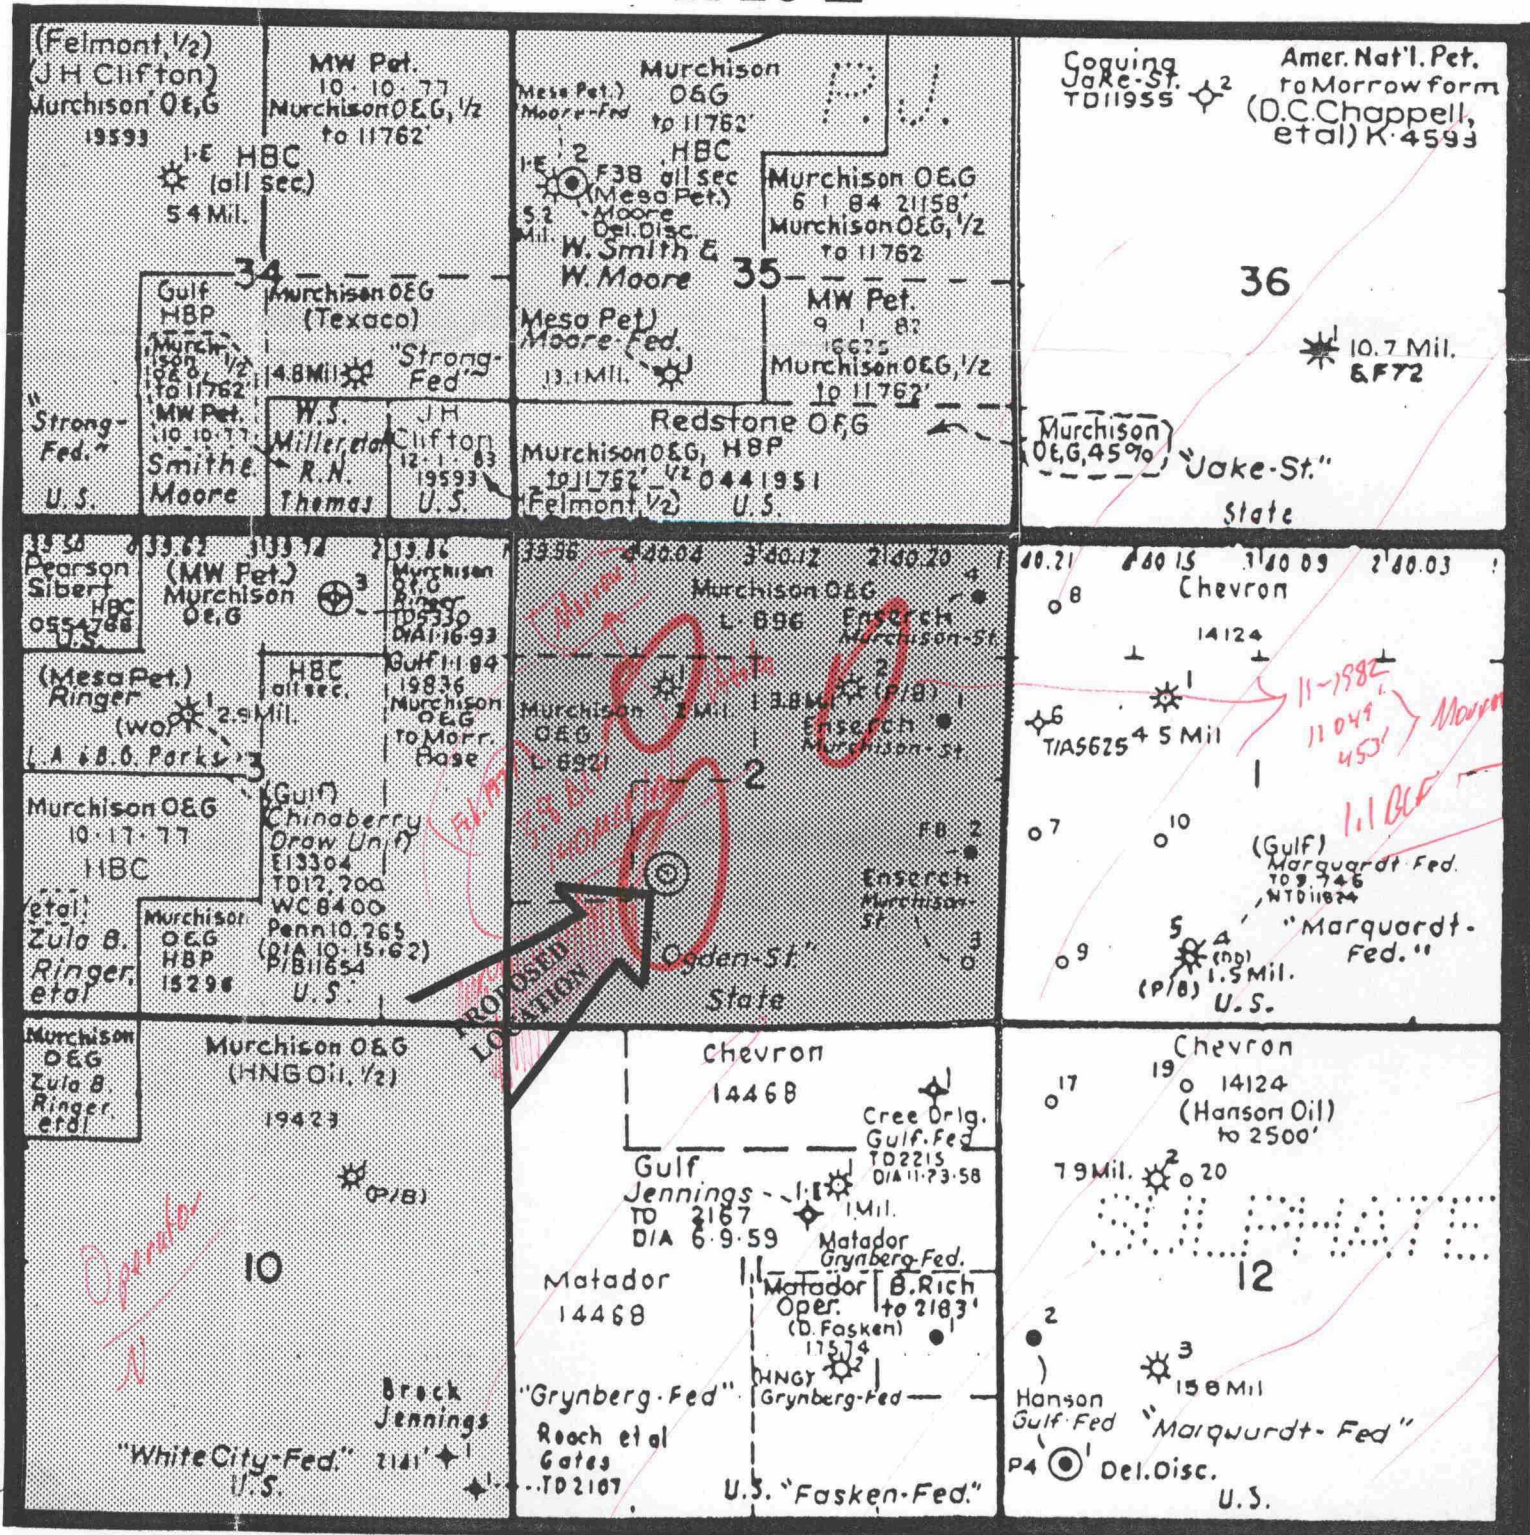 (Felmont, 1/2)
(J H Clifton)
Murchison O&G
19593
1-E HBC
(all sec.)
5.4 Mil.
MW Pet.
10·10·77
Murchison O&G, 1/2
to 11762'
34
Gulf
HBP
Murchi-
son, 1/2
O&G,
to 11762'
MW Pet.
10·10·77
Smith &
Moore
"Strong-
Fed."
U.S.
Murchison O&G
(Texaco)
4.8 Mil.
"Strong-
Fed"
W.S.
Miller, etal
R.N.
Thomas
J.H.
Clifton
12·1·83
19593
U.S.
Mesa Pet.)
Moore-Fed
Murchison
O&G
to 11762'
HBC
all sec
1-E
2
F38
(Mesa Pet.)
Moore
Del. Disc.
5.2
Mil.
W. Smith &
W. Moore
P.J.
Murchison O&G
6 1 84 21158'
Murchison O&G, 1/2
to 11762
35
Mesa Pet)
Moore-Fed.
13.1 Mil.
1
MW Pet.
9 1 82
16625
Murchison O&G, 1/2
to 11762'
Redstone O&G
Murchison O&G, HBP
to 11762' 1/2 0441951
(Felmont, 1/2) U.S.
Coquina
Jake-St.
TD11955
2
Amer. Nat'l. Pet.
to Morrow form
(D.C. Chappell,
etal) K-4593
36
1
10.7 Mil.
& F72
Murchison
O&G, 45%
"Jake-St."
State
Pearson
Sibert
HBC
0554766
U.S.
(MW Pet.)
Murchison
O&G
3
39.86
Murchison
O&G
Ringer
TD5330
D/A 1-16-93
Gulf 1·1·84
19836
Murchison
O&G
to Morr.
Base
(Mesa Pet.)
Ringer
1
(WO)
2.9 Mil.
L.A. & B.O. Parks
HBC
all sec.
3
Murchison O&G
10·17·77
HBC
etal,
Zula B.
Ringer,
etal
Murchison
O&G
HBP
15296
(Gulf)
Chinaberry
Draw Unit)
E13304
TD12,700
WC8400
Penn10,265
(D/A 10·15·62)
P/B11654
U.S.
39.96 4 40.04 3 40.12 2 40.20 1
Murchison O&G
L-896
4
Enserch
Murchison-St
Morrow
White
1
2 Mil.
Murchison
O&G
L-6921
3.8 Mil
2
(P/B)
1
Enserch
Murchison-St
2
F8
2
Enserch
Murchison-
St
3
"Ogden-St."
State
PROPOSED
LOCATION
40.21 4 40.15 3 40.09 2 40.03 1
Chevron
14124
8
1
6
T/A5625
4.5 Mil
11-1982
11049'
453'
Morrow
1.1 BCF
1
7
10
(Gulf)
Marquardt-Fed.
TD9,746
NTD11824
5
4
(DD)
1.5 Mil.
(P/B)
9
"Marquardt-
Fed."
U.S.
Murchison
O&G
Zula B
Ringer,
etal
Murchison O&G
(HNG Oil, 1/2)
19423
1
(P/B)
Operator
N
10
Brock
Jennings
"White City-Fed." 2141' 1
U.S.
1
Chevron
14468
1
Cree Drlg.
Gulf-Fed
TD2215
D/A 11·23·58
Gulf
Jennings
TD 2167
D/A 6·9·59
1-E
1
1 Mil.
Matador
Grynberg-Fed.
Matador
14468
11
Matador
Oper.
(D. Fasken)
17574
B. Rich
to 2183'
1
2
HNGY
Grynberg-Fed
"Grynberg-Fed"
Roach et al
Gates
TD2107
U.S. "Fasken-Fed."
Chevron
14124
(Hanson Oil)
to 2500'
17
19
7.9 Mil.
2
20
SULPHATE
12
2
Hanson
Gulf-Fed
3
15.8 Mil
"Marquardt-Fed"
P4
1
Del. Disc.
U.S.